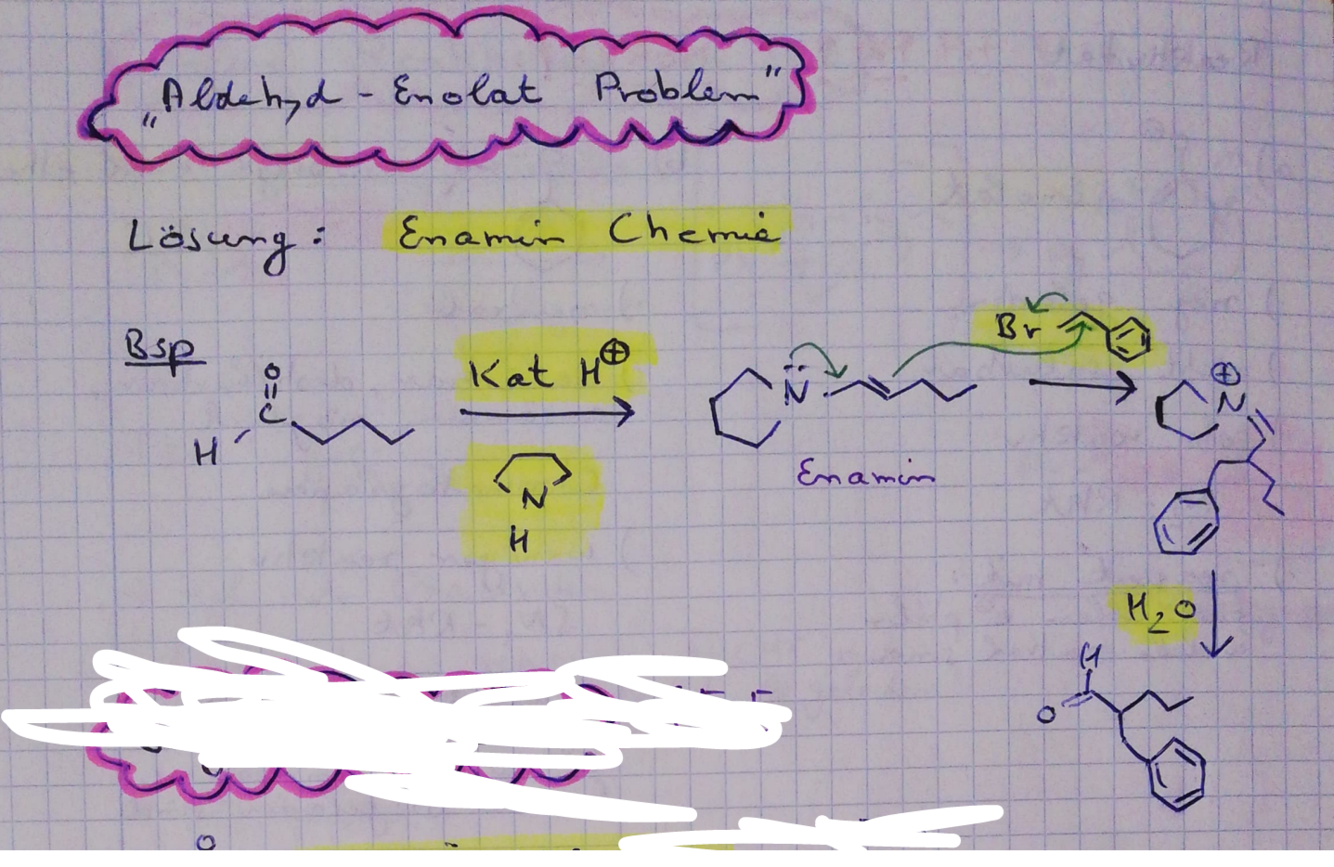 „Aldehyd - Enolat Problem"
Lösung: Enamin Chemie
Bsp
O
C
H
Kat H⊕
N
H
N
Enamin
Br
⊕
N
H₂O
H
O
O